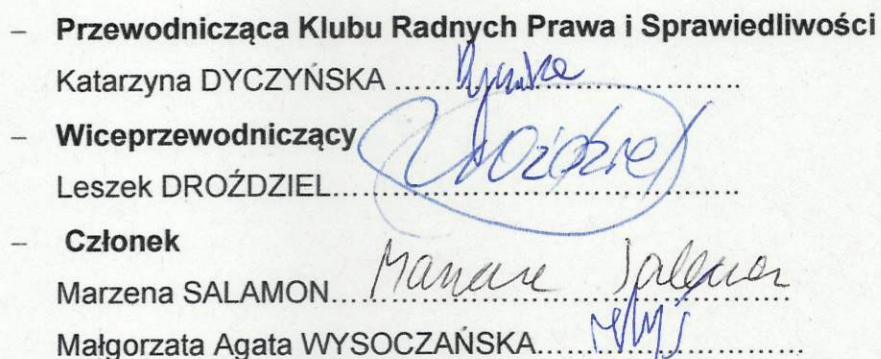 – Przewodnicząca Klubu Radnych Prawa i Sprawiedliwości
Katarzyna DYCZYŃSKA ....................................
– Wiceprzewodniczący
Leszek DROŹDZIEL.......................................... Droździel
– Członek
Marzena SALAMON.......................................... Marzena Salamon
Małgorzata Agata WYSOCZAŃSKA...........................